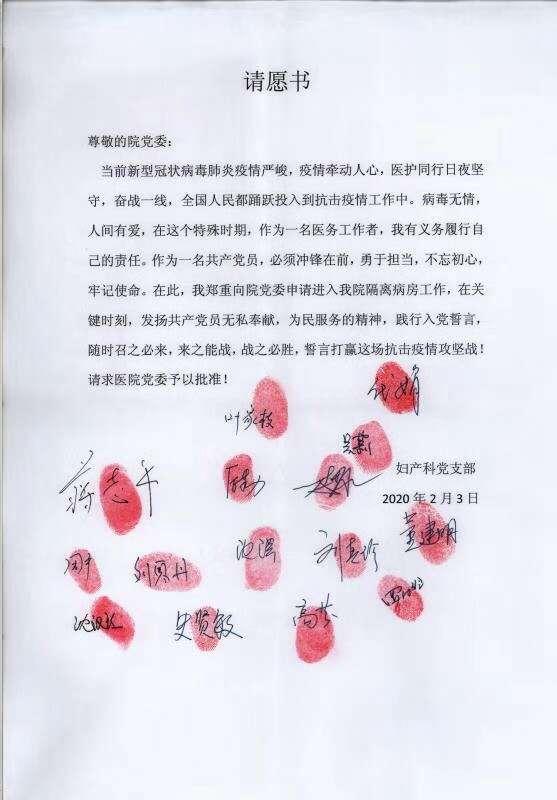 请愿书
尊敬的院党委：
当前新型冠状病毒肺炎疫情严峻，疫情牵动人心，医护同行日夜坚
守，奋战一线，全国人民都踊跃投入到抗击疫情工作中。病毒无情，
人间有爱，在这个特殊时期，作为一名医务工作者，我有义务履行自
己的责任。作为一名共产党员，必须冲锋在前，勇于担当，不忘初心，
牢记使命。在此，我郑重向院党委申请进入我院隔离病房工作，在关
键时刻，发扬共产党员无私奉献，为民服务的精神，践行入党誓言，
随时召之必来，来之能战，战之必胜，誓言打赢这场抗击疫情攻坚战！
请求医院党委予以批准！
妇产科党支部
蒋志午
2020年2月3日
董建明
史贤敏